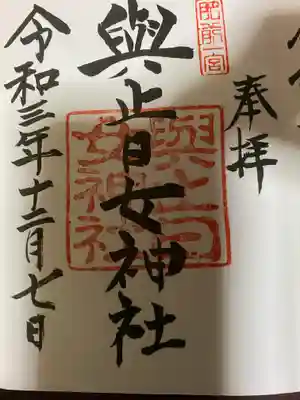 奉拝
肥前一宮
與止日女神社
與止日
女神社
令和三年十二月七日